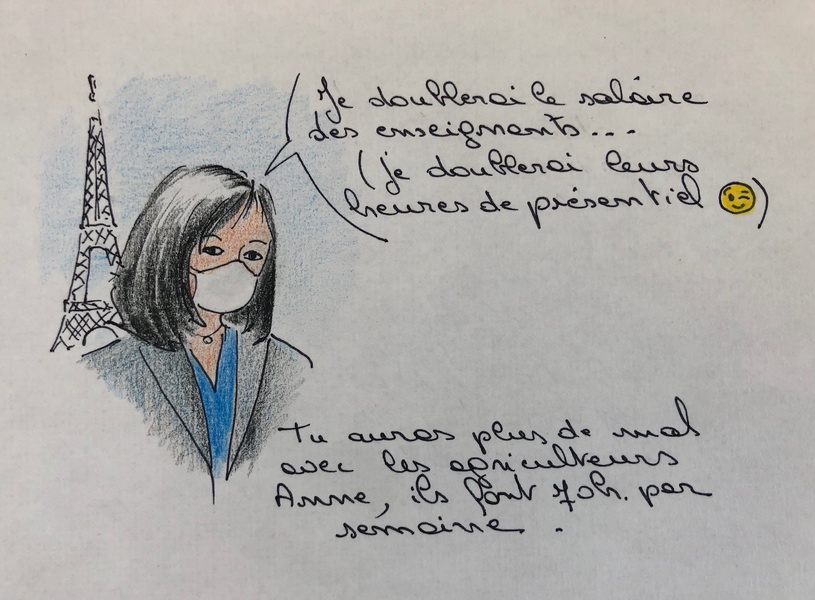 Je doublerai le salaire
des enseignants...
(je doublerai leurs
heures de présentiel 😉)
Tu auras plus de mal
avec les agriculteurs
Anne, ils font 70h. par
semaine .